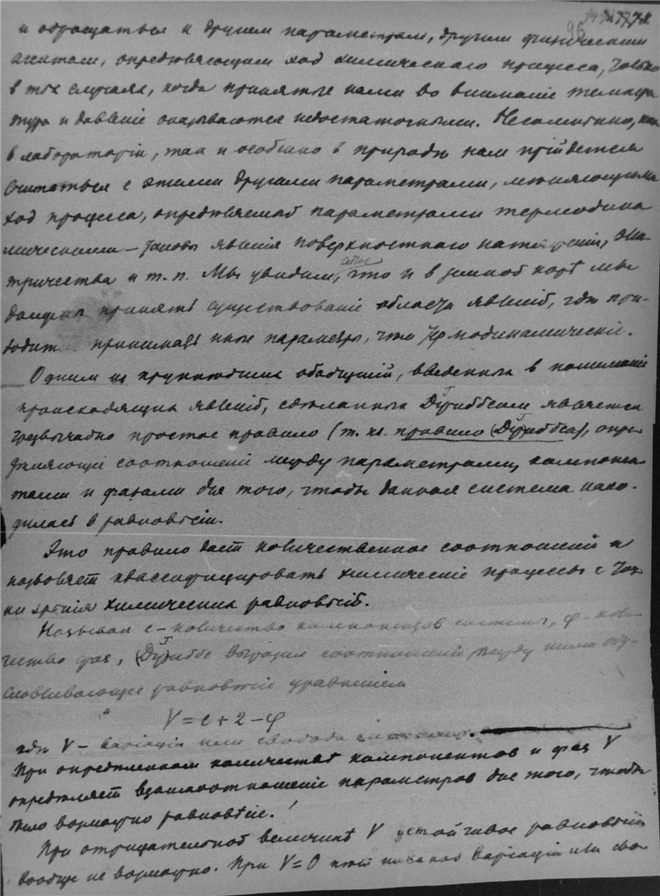 96
и обращаться к другим параметрам, другим физическим
агентам, определяющим ход химическаго процесса, только
в тех случаях, когда принятые нами во внимание темпера
тура и давление оказываются недостаточными. Несомненно, как
в лаборатории, так и особенно в природе нам прийдется
считаться с этими другими параметрами, меняющими
ход процесса, определяемый параметрами термодина
мическими – таковы явления поверхностнаго натяжения, элек
тричества и т. п. Мы увидим, что и в земной коре мы
должны принять существование области явлений, где при
ходится принимать иные параметры, чем термодинамические.
Одним из крупнейших обобщений, введенных в понимание
происходящих явлений, сделанных Джиббсом является
чрезвычайно простое правило (т. н. правило Джиббса), опре
деляющее соотношение между параметрами, компонен
тами и фазами для того, чтобы данная система нахо-
дилась в равновесии.
Это правило дает количественное соотношение и
позволяет классифицировать химические процессы с точ
ки зрения химических равновесий.
Называя c – количество компонентов системы, φ – коли
чество фаз, Джиббс выразил соотношение между ними обу-
словливающее равновесие уравнением
V = c + 2 – φ
где V – вариация или свобода системы.
При определенном количестве компонентов и фаз V
определяет взаимоотношение параметров для того, чтобы
было возможно равновесие!
При отрицательной величине V устойчивое равновесие
вообще не возможно. При V = 0 нет никакой вариации или сво-